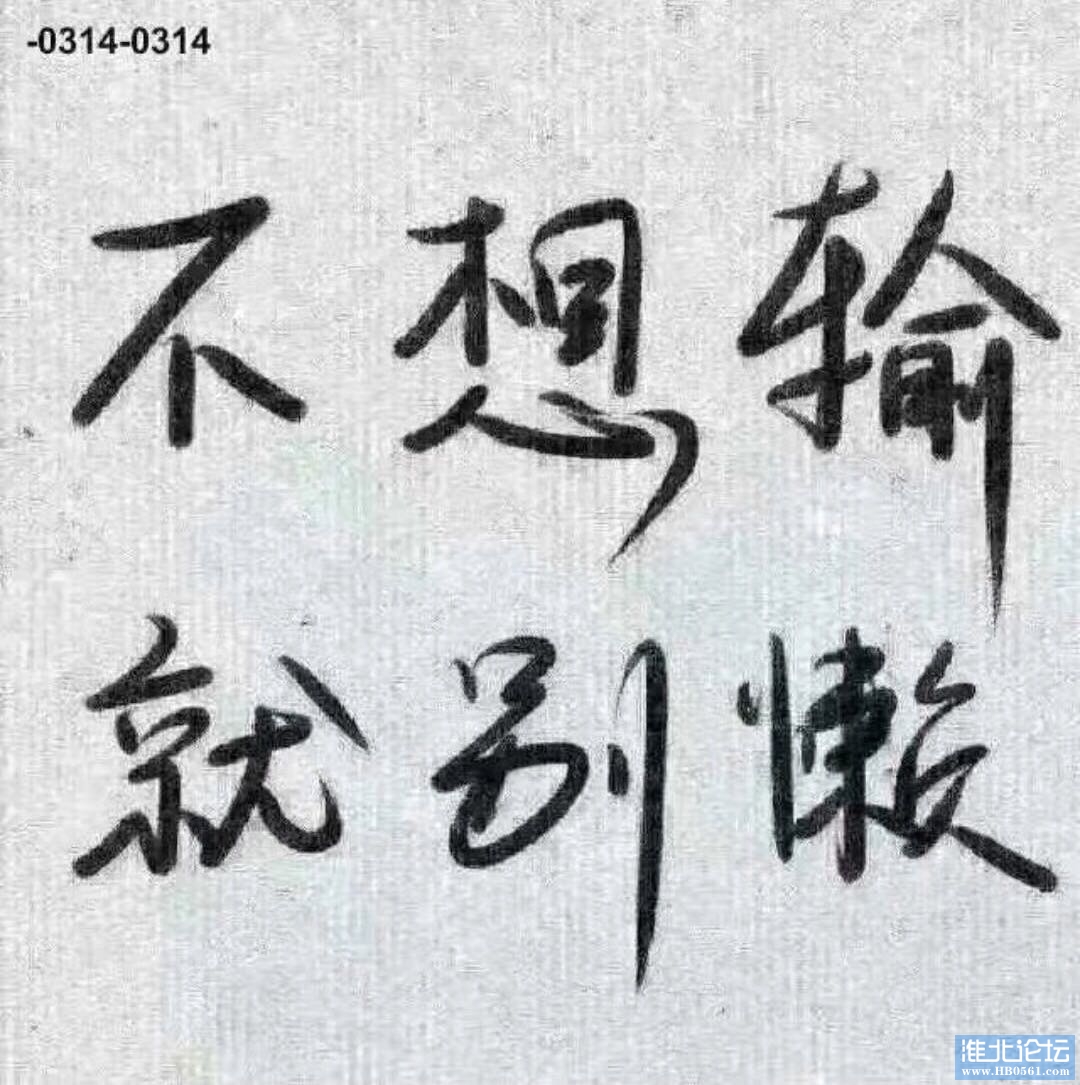 -0314-0314
不想输
就别懒
淮北论坛
www.HB0561.com